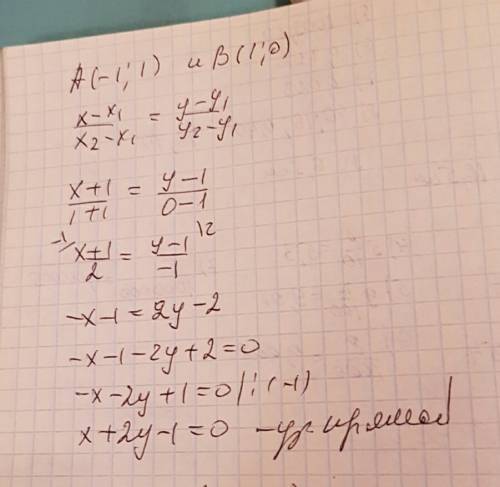 A(-1; 1) и B(1; 0)
x-x₁/x₂-x₁ = y-y₁/y₂-y₁
x+1/1+1 = y-1/0-1
-1/ x+1/2 = y-1/-1 \2
-x-1=2y-2
-x-1-2y+2=0
-x-2y+1=0 |:(-1)
x+2y-1=0 -ур-е прямой